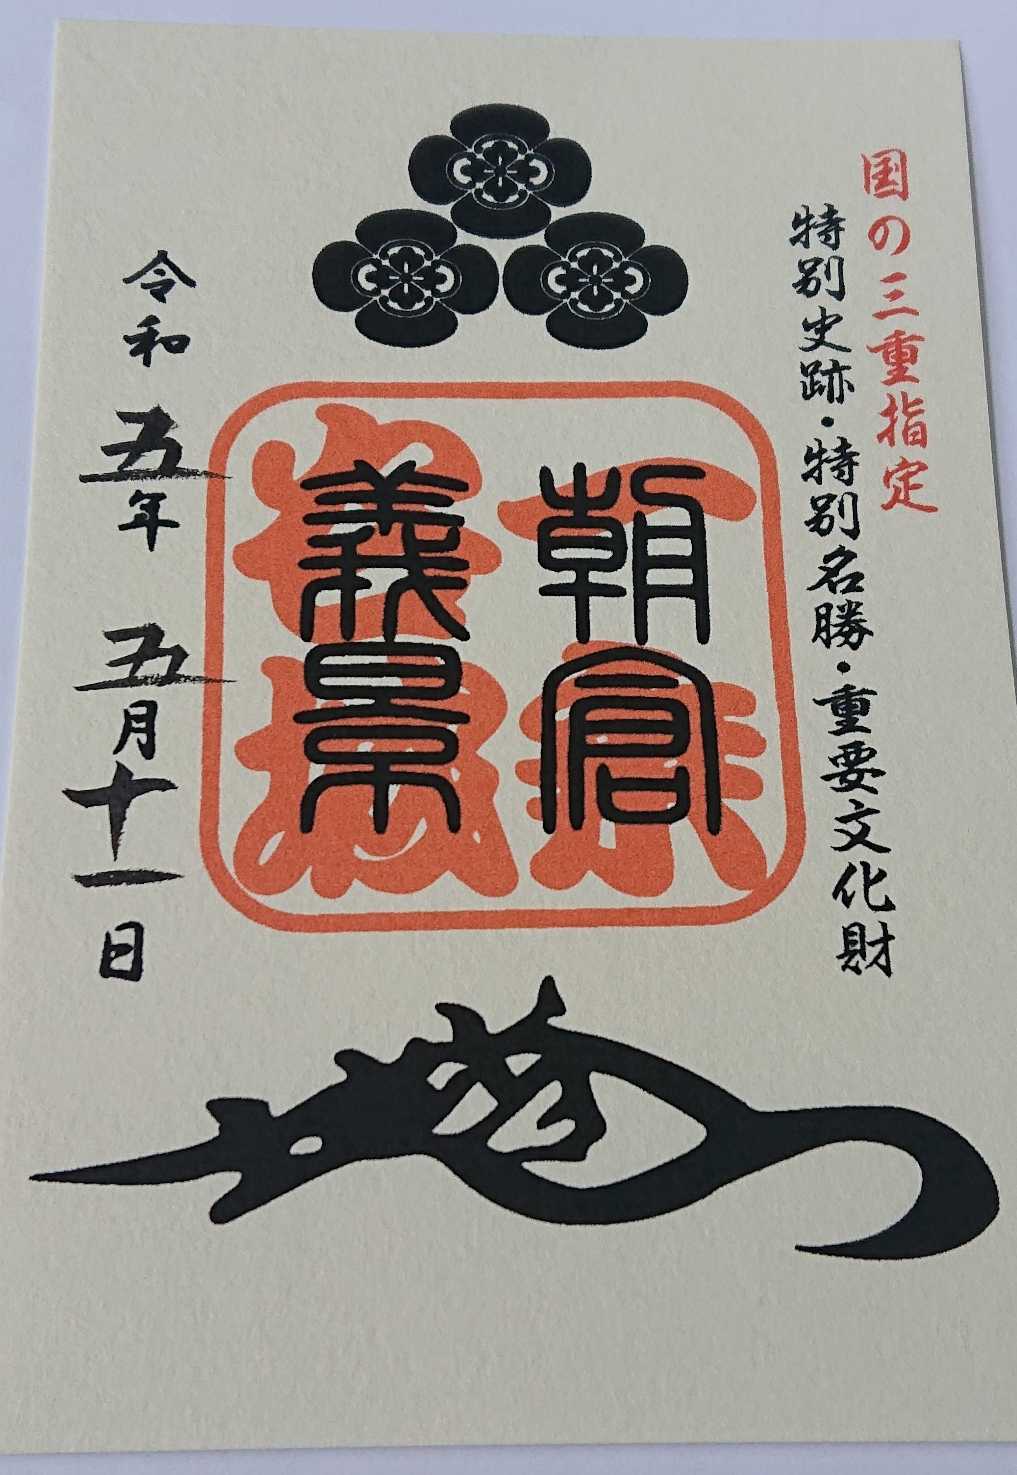 国の三重指定
特別史跡・特別名勝・重要文化財
朝倉
義景
令和五年 五月十一日